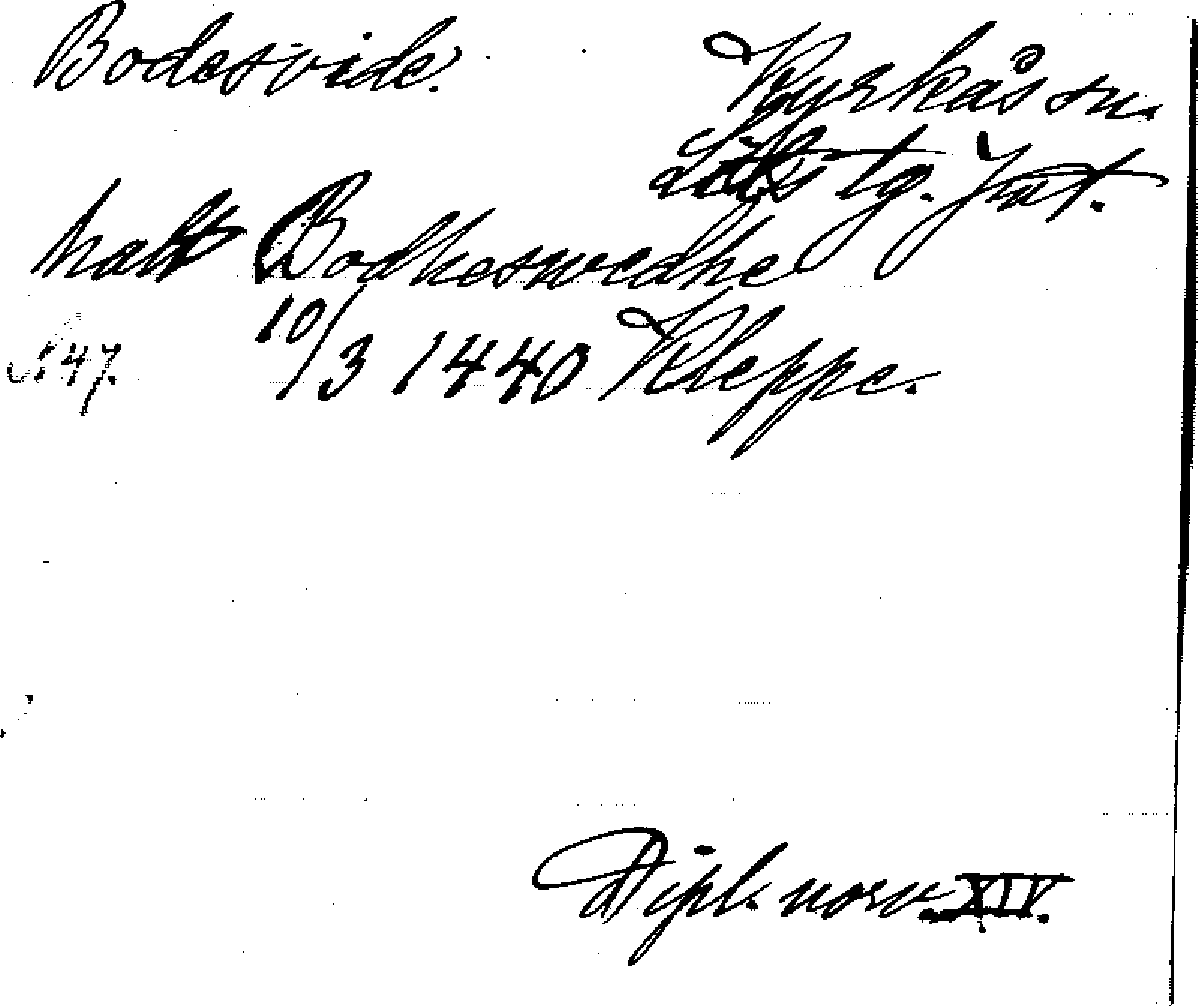 Bodesvide.
Kyrkås sn.
Liths tg. Jmt.
halft Bodheswedhe
N 47. 10/3 1440 Kleppe.
Dipl. norv. XIV.